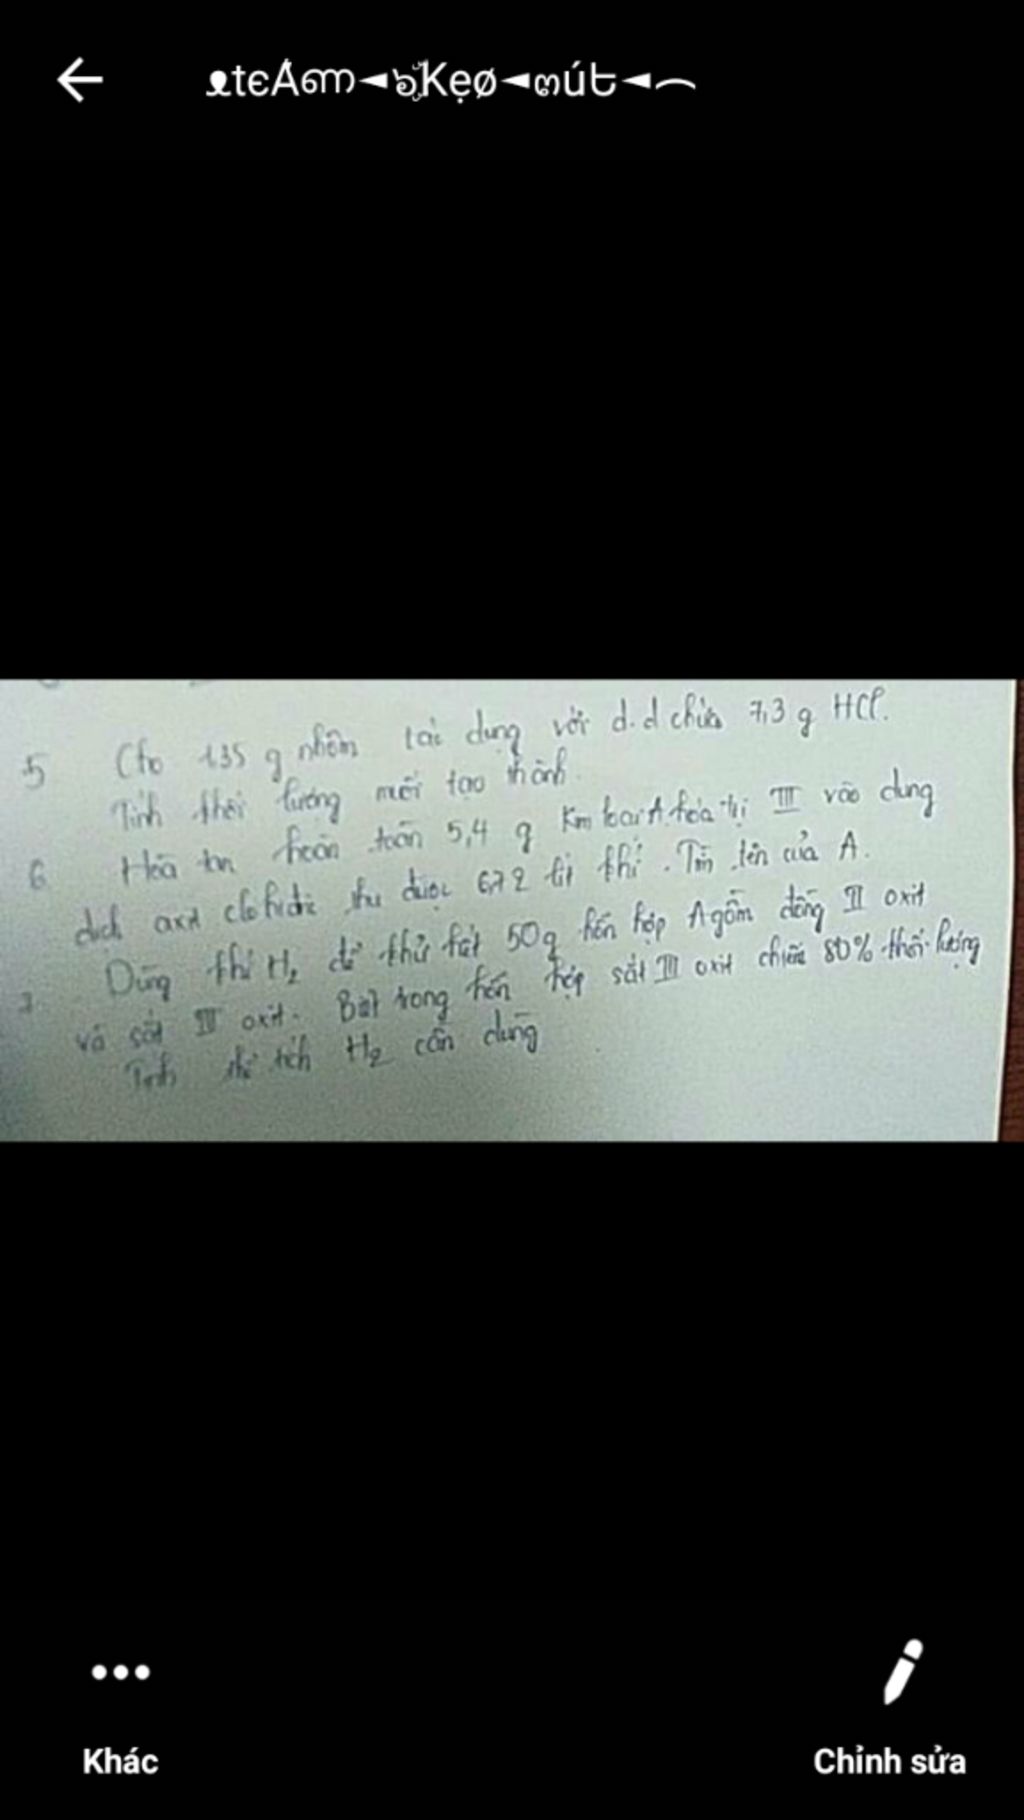 5 Cho 1,35 g nhôm tác dụng với d.d chứa 7,3 g HCl.
Tính khối lượng muối tạo thành.
6 Hòa tan hoàn toàn 5,4 g Km loại A hóa trị III vào dung
dịch axit clohiđric thu được 6,72 lít khí. Tìm tên của A.
7 Dùng khí H2 để khử hết 50g hỗn hợp A gồm đồng II oxit
và sắt III oxit. Biết trong hỗn hợp sắt III oxit chiếm 80% khối lượng
Tính thể tích H2 cần dùng
Khác
Chỉnh sửa